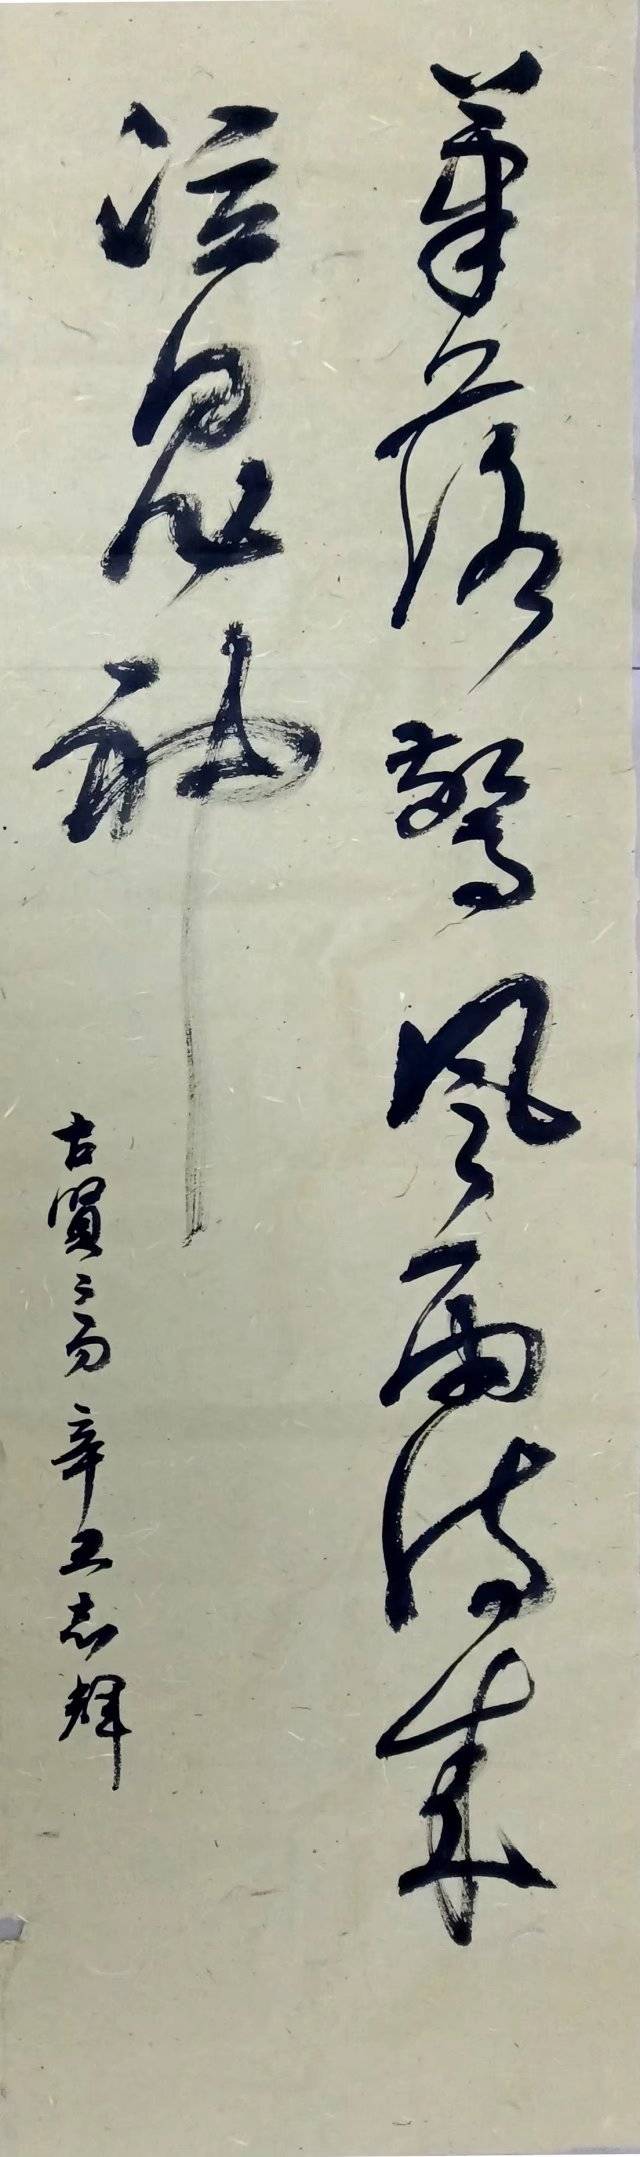 筆落驚風雨詩成
泣鬼神
古賢句辛丑志輝